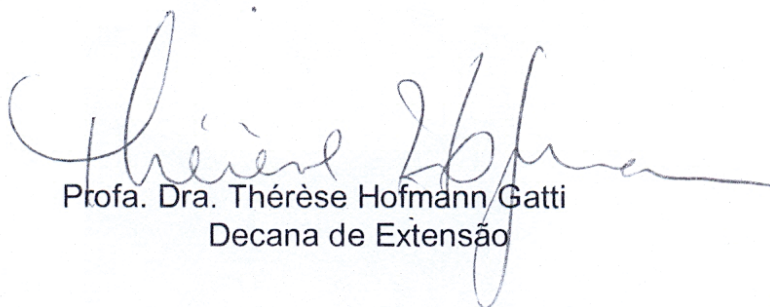 Thérèse Hofmann
Profa. Dra. Thérèse Hofmann Gatti
Decana de Extensão